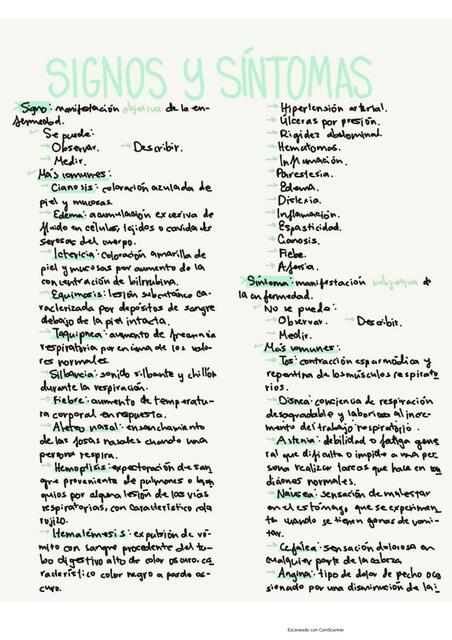 SIGNOS Y SÍNTOMAS
Signo: manifestación objetiva de la en-
fermedad.
Se puede:
Observar. → Describir.
Medir.
Más comunes:
Cianosis: coloración azulada de
piel y mucosas.
Edema: acumulación excesiva de
fluido en células, tejidos o cavidades
serosas del cuerpo.
Ictericia: coloración amarilla de
piel y mucosas por aumento de la
concentración de bilirrubina.
Equimosis: lesión subcutánea ca-
racterizada por depósitos de sangre
debajo de la piel intacta.
Taquipnea: aumento de frecuencia
respiratoria por encima de los valo-
res normales.
Silbancia: sonido silbante y chillón
durante la respiración.
Fiebre: aumento de temperatu-
ra corporal en respuesta.
Aleteo nasal: ensanchamiento
de las fosas nasales cuando una
persona respira.
Hemoptisis: expectoración de san-
gre proveniente de pulmones o bron
quios por alguna lesión de las vías
respiratorias, con característico
rojizo.
Hematémesis: expulsión de vó-
mito con sangre procedente del tu-
bo digestivo alto de color oscuro. ca-
racterístico color negro a pardo os-
curo.
Hipertensión arterial.
Úlceras por presión.
Rigidez abdominal
Hematomas.
Inflamación.
Parestesia.
Edema.
Dislexia.
Inflamación.
Espasticidad.
Cianosis.
Fiebe.
Afasia.
Síntoma: manifestación subjetiva de
la enfermedad.
No se puede:
Observar. → Describir.
Medir.
Más comunes:
Tos: contracción espasmódica y
repentina de los músculos respirato
rios.
Disnea: conciencia de respiración
desagradable y laboriosa al incre-
mento del trabajo respiratorio.
Astenia: debilidad o fatiga gene
ral que dificulta o impide a una per
sona realizar tareas que hace en con
diciones normales.
Náusea: sensación de malestar
en el estómago que se experimen
ta cuando se tienen ganas de vomi-
tar.
Cefalea: sensación dolorosa en
cualquier parte de la cabeza
Angina: tipo de dolor de pecho oca
sionado por una disminución de la
Escaneado con CamScanner